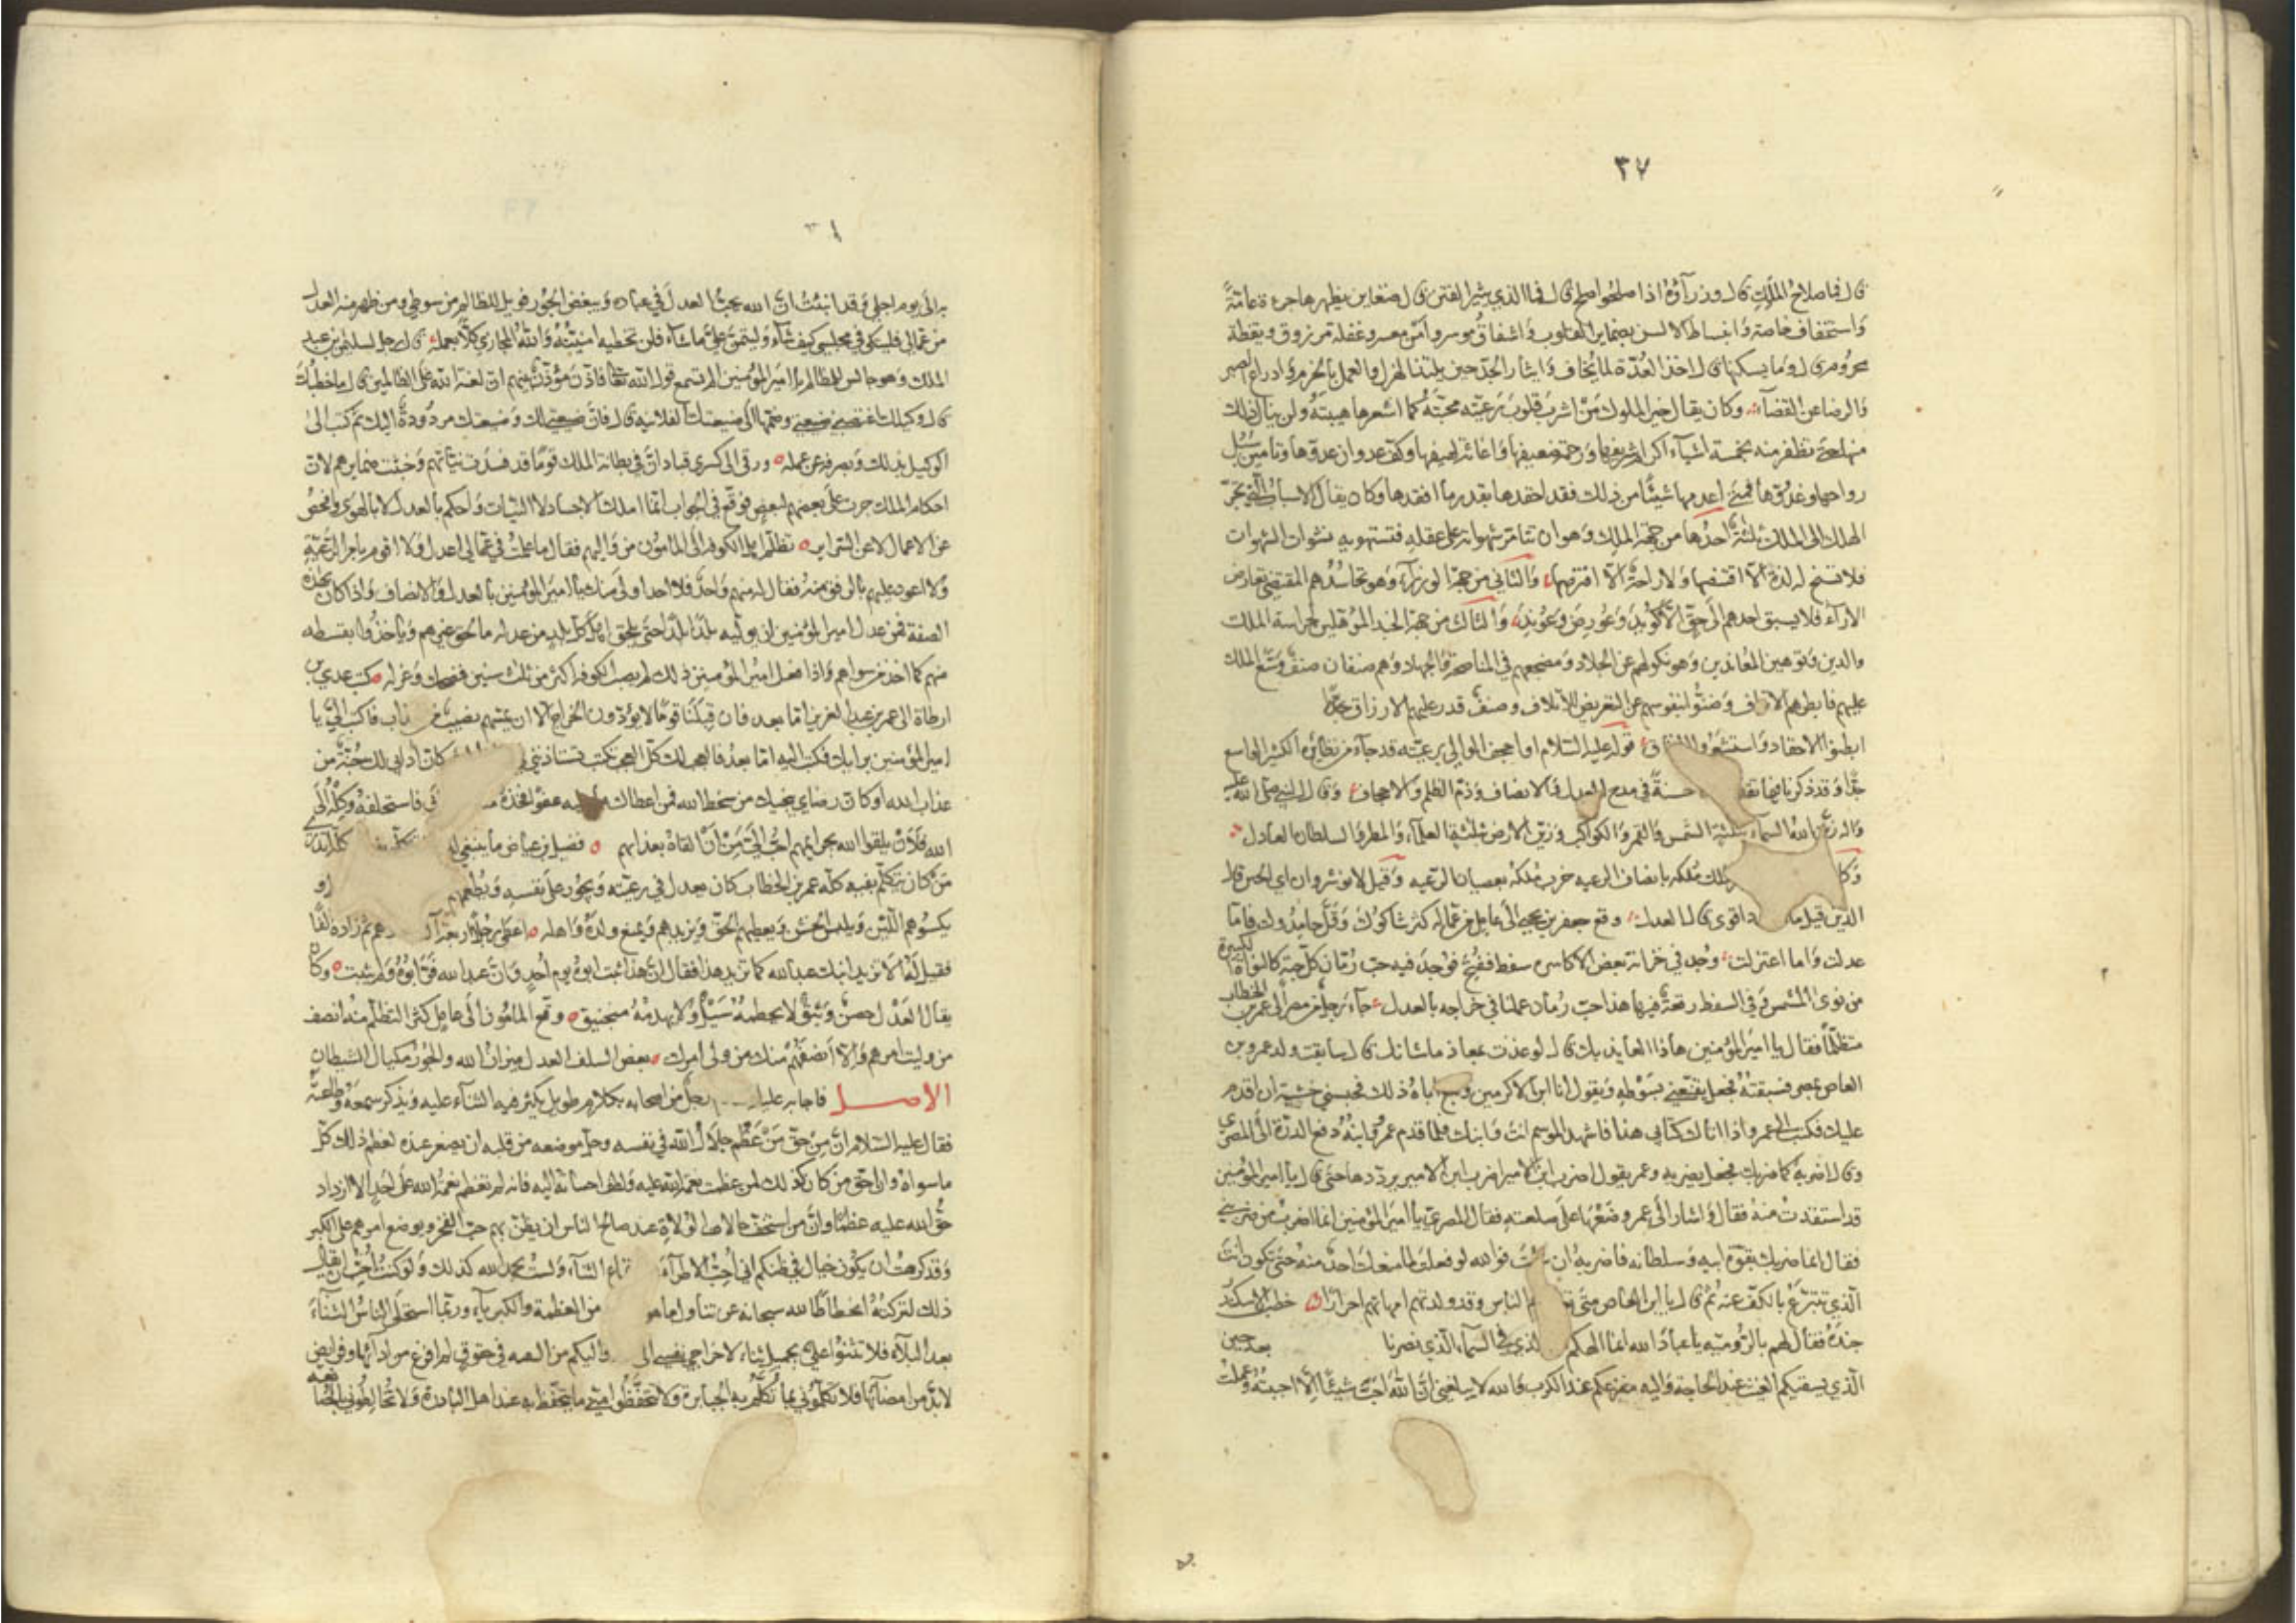 ٣٧
قال فما صلاح الملك قال وزرآؤه اذا صلحوا صلح قال فما الذي يثير الفتن قال ضغاين يظهرها جرءة عامّة
واستخفاف خاصة وانبساط الالسن بضماير القلوب واشفاق موسر وامن معسر وغفلة مرزوق ويقظة
محروم قال وما يسكنها قال اخذ العدّة لما يخاف وايثار الجدّ حين يلتذ الهزل والعمل بالحزم وادراع الصبر
والرضا عن القضآء وكان يقال خير الملوك من اشرب قلوب رعيّته محبّته كما اشعرها هيبته ولن ينال ذلك
منها حتى تظفر منه بخمسة اشيآء اكرام شريفها ورحمة ضعيفها واغاثة لهيفها وكف عدوان عدوّها وتامين سبل
رواحها وغدوّها فمتى اعدمها شيئًا من ذلك فقد احقدها بقدر ما افقدها وكان يقال الاسباب التي تجرّ
الهلك الى الملك ثلثة احدها من جهة الملك وهو ان تتامّر شهواته على عقله فتستهويه نشوات الشهوات
فلا تسنح له لذة الّا اقتنصها ولا راحة الّا افترصها والثاني من جهة الوزرآء وهو تحاسدهم المقتضي تعارض
الارآء فلا يسبق احدهم الى حقّ الّا كويد وعورض وعوند والثالث من جهة الجند المؤهّلين لحراسة الملك
والدين وتوهين المعاندين وهو نكولهم عن الجلاد وتضجيعهم في المناصحة والجهاد وهم صنفان صنف وسّع الملك
عليهم فابطرهم الاتراف وضنّوا بنفوسهم عن التعريض للاتلاف وصنف قدر عليهم الارزاق
ابطنوا الاحقاد واستشعروا النفاق قوله عليه السّلام او اجحف الوالي برعيّته قد جآء من نظائره الكثير الواسع
جدًّا وقد ذكرنا فيما تقدم حسنة في مدح العدل والانصاف وذم الظلم والاجحاف وقال النبي صلى الله عليه
وآله زيّن الله السمآء بثلثة الشمس والقمر والكواكب وزيّن الارض بثلثة العلمآء والمطر والسلطان العادل
وكا ملك ملكه بانصاف الرعيه خرب ملكه بعصيان الرعيه وقيل لانوشروان اي الجنن
الدين قيل فما اقوى قال العدل وقع جعفر بن يحيى الى عامل من عماله كثر شاكوك وقلّ حامدوك فامّا
عدلت واما اعتزلت وجد في خزانة بعض الاكاسره سفط ففتح فوجد فيه حب رمان كل حبة كالنواة الكبيرة
من نوى المشمش وفي السفط رقعة فيها هذا حب رمان عملنا في خراجه بالعدل جآء رجل من مصر الى عمر بن الخطاب
متظلّمًا فقال يا امير المؤمنين هذا العايذ بك قال لو عذت بمعاذ ما شانك قال سابقت ولد عمرو بن
العاص بمصر فسبقته فجعل يقنّعني بسوطه ويقول انا ابن الاكرمين وبلغ اباه ذلك فحبسني خشية ان اقدم
عليك فكتب الى عمرو اذا اتاك كتابي هذا فاشهد الموسم انت وابنك فلما قدم عمرو وابنه دفع الدرّة الى المصري
وقال اضربه كما ضربك فجعل يضربه وعمر يقول اضرب ابن الامير اضرب ابن الامير يردّدها حتى قال يا امير المؤمنين
قد استقدت منه فقال واشار الى عمرو ضعها على صلعته فقال المصري يا امير المؤمنين انما اضرب من ضربني
فقال انما ضربك بقوة ابيه وسلطانه فاضربه ان شئت فوالله لو فعلت لما منعك احد منه حتى تكون انت
الّذي تتبرّع بالكف عنه ثم قال يا ابن العاص متى الناس وقد ولدتهم امهاتهم احرارًا خطب الاسكندر
جنده فقال لهم بالرومية يا عباد الله انما الهكم الذي في السمآء الّذي نصرنا بعد حين
الّذي يسقيكم الغيث عند الحاجة واليه مفزعكم عند الكرب والله لا يبلغني ان الله احبّ شيئًا الّا احببته وعملت
به الى يوم اجلي وقد انبئت ان الله يحبّ العدل في عباده ويبغض الجور فويل للظالم من سوطي ومن ظهر منه العدل
من عمّالي فليتكئ في مجلسي كيف شآء وليتمنّ عليّ ما شآء فلن تخطيه امنيّته والله المجازي كلّا بعمله قال رجل لسليمن بن عبد
الملك وهو جالس للمظالم يا امير المؤمنين الم تسمع قول الله تعالى فاذّن مؤذّن بينهم ان لعنة الله على الظالمين قال ما خطبك
قال وكيلك اغتصبني ضيعتي وضمّها الى ضيعتك الفلانيه قال فان ضيعتي لك وضيعتك مردودة اليك ثم كتب الى
الوكيل بذلك وبصرفه عن عمله ورقى الى كسرى قباد ان في بطانة الملك قومًا قد فسدت نيّاتهم وخبثت ضمايرهم لان
احكام الملك جرت على بعضهم لبعض فوقع في الجواب انما املك الاجساد لا النيّات واحكم بالعدل لا بالهوى وافحص
عن الاعمال لا عن السّراير تظلّم اهل الكوفه الى المامون من واليهم فقال ما علمت في عمّالي اعدل ولا اقوم بامر الرعيّة
ولا اعود عليهم بالرفق منه فقال له منهم واحد فلا احد اولى منك يا امير المؤمنين بالعدل والانصاف واذا كان بهذه
الصفة فمن عدل امير المؤمنين ان يولّيه بلدًا بلدًا حتى يلحق اهل كل بلد من عدله ما لحق غيرهم وياخذوا بقسطه
منهم كما اخذ من سواهم واذا فعل امير المؤمنين ذلك لم يصب الكوفه اكثر من ثلث سنين فضحك وعزله كتب عدي بن
ارطاة الى عمر بن عبد العزيز اما بعد فان قبلنا قومًا لا يؤدّون الخراج الا ان يمسّهم نصيب من فاكتب اليّ يا
امير المؤمنين برايك فكتب اليه امّا بعد فالعجب لك كلّ العجب تكتب تستاذنني كان اذني لك جنة من
عذاب الله او كان رضاي ينجيك من سخط الله فمن اعطاك عليه عفوا فخذه فاستحلفه وكله الى
الله فلان يلقوا الله بجرائمهم احبّ اليّ من ان القاه بعذابهم فضيل بن عياض ما ينبغي
من كان يتكلّم بفيه كلّه عمر بن الخطاب كان يعدل في رعيّته ويجور على نفسه ويطعمهم
يكسوهم اللّيّن ويلبس الخشن ويعطيهم الحقّ ويزيدهم ويمنع ولده واهله اعطى رجلًا اربعة آلاف درهم ثم زاده الفًا
فقيل له الا تزيد ابنك عبد الله كما تزيد هذا فقال ان هذا ثبت ابوه يوم احد وان عبد الله فرّ ابوه ولم يثبت وكان
يقال العدل حصن وثيق لا يحطمه سيل ولا يهدمه منجنيق وقع المامون الى عامل كثر التظلّم منه انصف
من وليت امرهم والّا انصفهم منك من ولي امرك بعض السلف العدل ميزان الله والجور مكيال الشيطان
الاصـل فاجابه عليه رجل من اصحابه بكلام طويل يكثر فيه الثنآء عليه ويذكر سمعه وطاعته
فقال عليه السّلام انّ من حقّ من عظم جلال الله في نفسه وجلّ موضعه من قلبه ان يصغر عنده لعظم ذلك كلّ
ما سواه وان احق من كان كذلك لمن عظمت نعمة الله عليه ولطف احسانه اليه فانه لم تعظم نعمة الله على احد الّا ازداد
حقّ الله عليه عظمًا وان من اسخف حالات الولاة عند صالح الناس ان يظنّ بهم حبّ الفخر ويوضع امرهم على الكبر
وقد كرهت ان يكون جال في ظنكم اني احبّ الاطرآء الثنآء ولست بحمد الله كذلك ولو كنت احبّ ان يقال
ذلك لتركته انحطاطًا لله سبحانه عن تناول ما هو من العظمة والكبريآء وربّما استحلى الناس الثنآء
بعد البلآء فلا تثنوا عليّ بجميل ثناء لاخراجي نفسي الى واليكم من البقيه في حقوق لم افرغ من ادآئها وفرايض
لا بدّ من امضآئها فلا تكلموني بما تكلّم به الجبابرة ولا تتحفّظوا منّي بما يتحفّظ به عند اهل البادرة ولا تخالطوني بالمصانعه